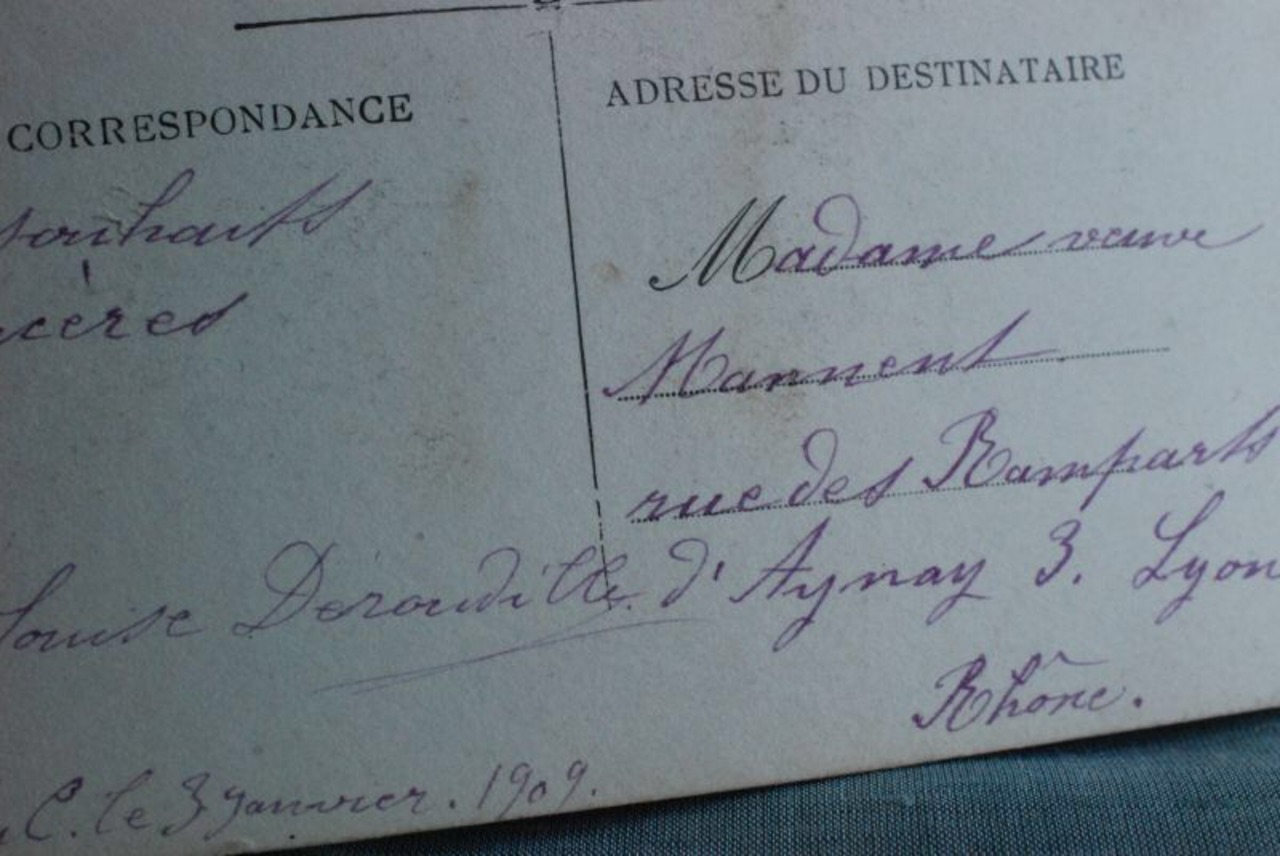 CORRESPONDANCE
souhaits
cères
Louise Dérouditte
C. le 3 janvier. 1909.
ADRESSE DU DESTINATAIRE
Madame veuve
Marment
rue des Ramparts
d'Aynay 3. Lyon
Rhône.